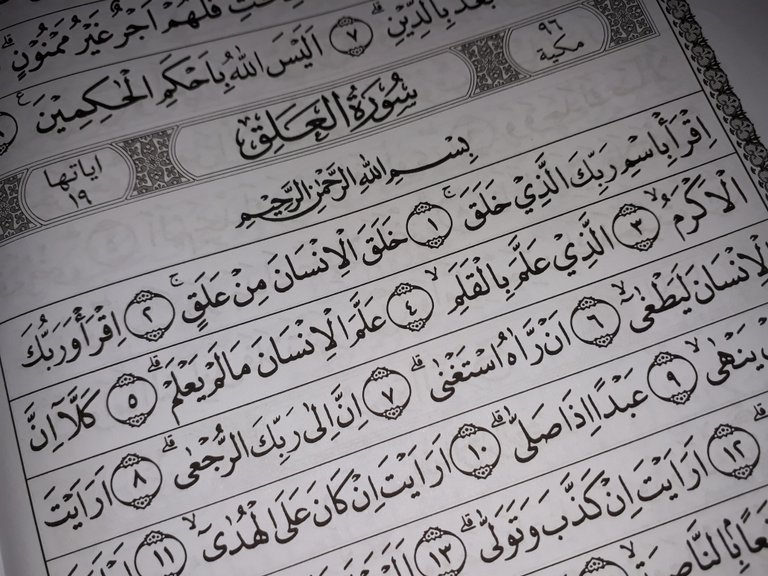 فَلَهُمْ اَجْرٌ غَيْرُ مَمْنُوْنٍ
بَعْدُ بِالدِّيْنِ ٧ اَلَيْسَ اللهُ بِاَحْكَمِ الْحٰكِمِيْنَ ٨
٩٦ مكية
سُوْرَةُ الْعَلَقِ
اياتها ١٩
بِسْمِ اللهِ الرَّحْمٰنِ الرَّحِيْمِ
اِقْرَأْ بِاسْمِ رَبِّكَ الَّذِيْ خَلَقَ ١ خَلَقَ الْاِنْسَانَ مِنْ عَلَقٍ ٢ اِقْرَأْ وَرَبُّكَ
الْاَكْرَمُ ٣ الَّذِيْ عَلَّمَ بِالْقَلَمِ ٤ عَلَّمَ الْاِنْسَانَ مَالَمْ يَعْلَمْ ٥ كَلَّآ اِنَّ
الْاِنْسَانَ لَيَطْغٰى ٦ اَنْ رَّاٰهُ اسْتَغْنٰى ٧ اِنَّ اِلٰى رَبِّكَ الرُّجْعٰى ٨ اَرَاَيْتَ
يَنْهٰى ٩ عَبْدًا اِذَا صَلّٰى ١٠ اَرَاَيْتَ اِنْ كَانَ عَلَى الْهُدٰى ١١
١٢ اَرَاَيْتَ اِنْ كَذَّبَ وَتَوَلّٰى ١٣